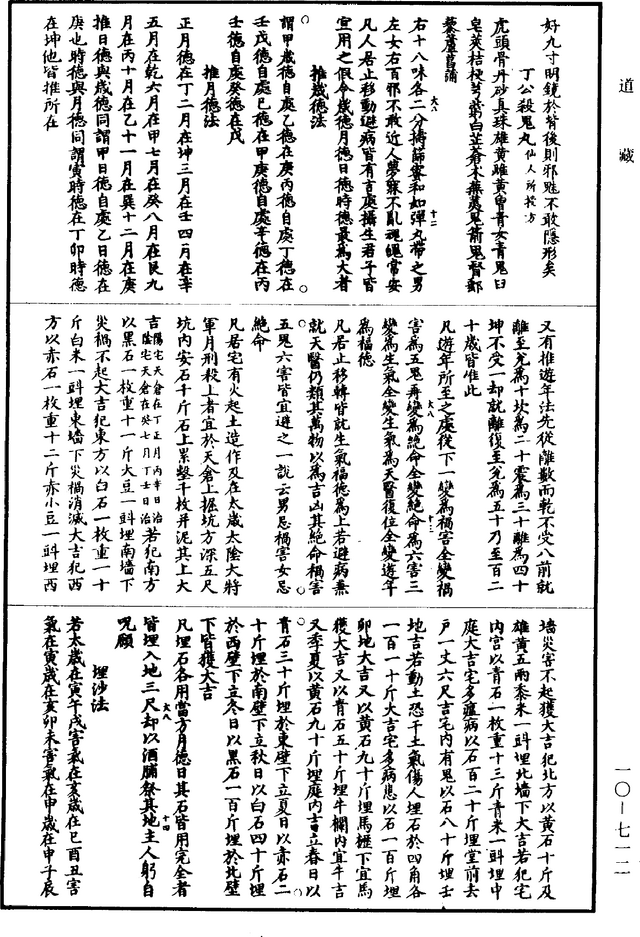 道藏
好九寸明鏡於背後則邪魅不敢隱形矣
丁公殺鬼丸仙人所授方
虎頭骨丹砂真珠雄黃雌黃曾青女青鬼臼
皂莢桔梗芎藭白芷蒼朮蕪荑鬼箭鬼督郵
藜蘆菖蒲
右十八味各二分擣篩蜜和如彈丸帶之男
左女右百邪不敢近人夢寐不亂魂魄常安
凡人居止移動避病皆有吉處攝生君子皆
宜用之假令歲德月德日德時德最為大者
推歲德法
謂甲歲德自處乙德在庚丙德自處丁德在
壬戊德自處己德在甲庚德自處辛德在丙
壬德自處癸德在戊
推月德法
正月德在丁二月在坤三月在壬四月在辛
五月在乾六月在甲七月在癸八月在艮九
月在丙十月在乙十一月在巽十二月在庚
推日德與歲德同謂甲日德自處乙日德在
庚也時德與月德同謂寅時德在丁卯時德
在坤他皆推所在
又有推遊年法先從離數而乾不受八前就
離至兊為十坎為二十震為三十離為四十
坤不受一却就離復至兊為五十乃至百二
十歲皆准此
凡遊年所至之處從下一變為禍害全變禍
害為五鬼再變為絕命全變絕命為六害三
變為生氣全變生氣為天醫復位全變遊年
為福德
凡居止移轉皆就生氣福德為上若避病兼
就天醫仍類其萬物以為吉凶其絕命禍害
五鬼六害皆宜避之一說云男忌禍害女忌
絕命
凡居宅有火起土造作及在太歲太陰大將
軍月刑殺上者宜於天倉上掘坑方深五尺
坑內安石千斤石上累墼千枚并泥其上大
吉陽宅天倉在丁正月丙辛日治陰宅天倉在癸七月丁壬日治若犯南方
以黑石一枚重十一斤大豆一㪷埋南墻下
災禍不起大吉犯東方以白石一枚重一十
斤白米一㪷埋東墻下災禍消滅大吉犯西
方以赤石一枚重十二斤赤小豆一㪷埋西
墻災害不起獲大吉犯北方以黃石十斤及
雄黃五兩黍米一㪷埋北墻下大吉若犯宅
內宮以青石一枚重十三斤青米一㪷埋中
庭大吉宅多瘟病以石百二十斤埋堂前去
戶一丈六尺吉宅內有鬼以石八十斤埋壬
地吉若動土恐干土氣傷人埋石於四角各
一百一十斤大吉宅多病患以石一百斤埋
卯地大吉又以黃石九十斤埋馬櫪下宜馬
獲大吉又以青石五十斤埋牛欄內宜牛吉
又季夏以黃石九十斤埋庭內吉立春日以
青石三十斤埋於東壁下立夏日以赤石二
十斤埋於南壁下立秋日以白石四十斤埋
於西壁下立冬日以黑石一百斤埋於北壁
下皆獲大吉
凡埋石各用當方月德日其石皆用完全者
皆埋入地三尺却以酒脯祭其地主人躬自
呪願
埋沙法
若太歲在寅午戌害氣在亥歲在巳酉丑害
氣在寅歲在亥卯未害氣在申歲在申子辰
一〇—七一二